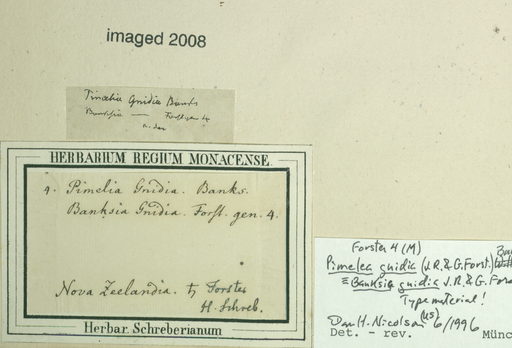 imaged 2008
Pimelia Gnidia Banks
Banksia — Forst gen 4
HERBARIUM REGIUM MONACENSE.
4. Pimelia Gnidia. Banks.
Banksia Gnidia. Forst. gen. 4.
Nova Zeelandia. ♄ Forster
H. Schreb.
Herbar. Schreberianum
Forster 4 (M)
Pimelea gnidia (J.R.&G.Forst.)
≡ Banksia gnidia J.R.&G. Fors
Type material!
Dan H. Nicolson (US) 6/1996
Det. - rev. Münc